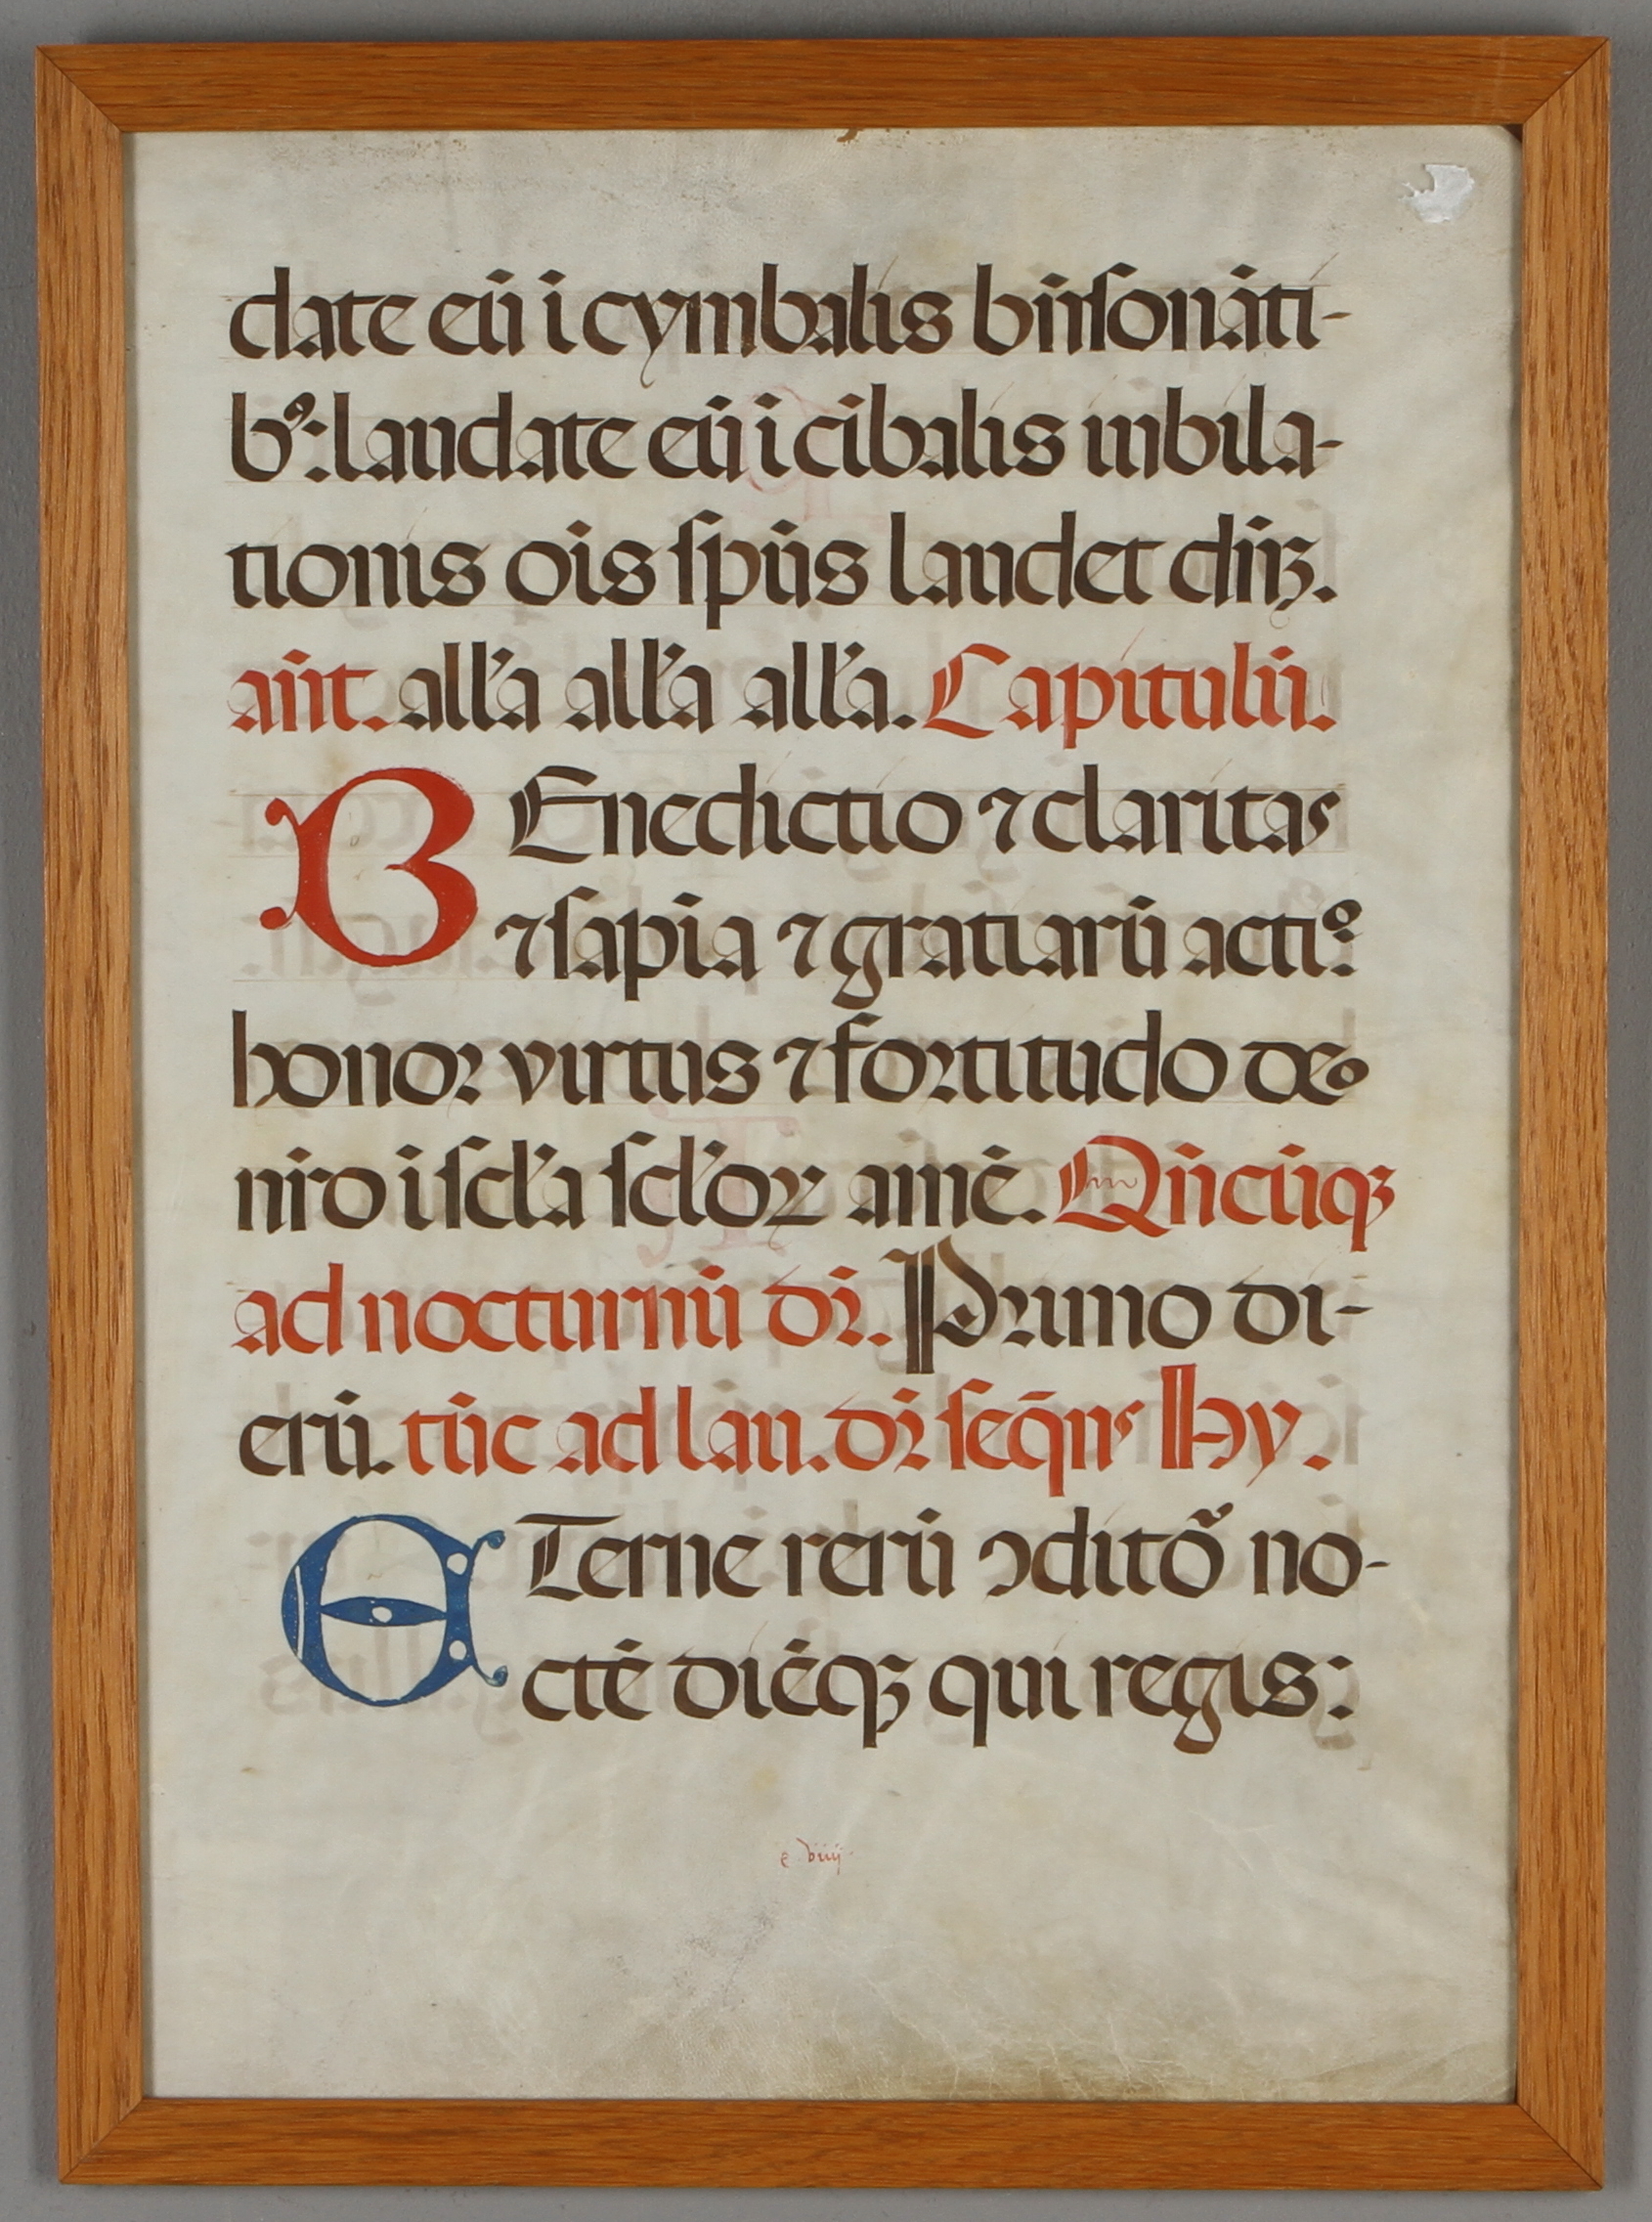 date eū ī cymbalis bn̄ sonāti-
bꝰ: laudate eū ī cībalis iubila-
tionis oīs sp̄us laudet dn̄ꝫ.
an̄t. all'a all'a all'a. Capitulū.
BEnedictio ⁊ claritas
⁊ sapīa ⁊ gratiarū actiº:
honor virtus ⁊ fortitudo deo
nr̄o ī scl'a scl'oꝝ amē. Qn̄cūqꝫ
ad nocturnū dr̄. Primo di-
erū. tūc ad lau. dr̄ seq̄ns Hy.
ETerne rerū ↄditoͬ no-
ctē diēqꝫ qui regis:
e viiij